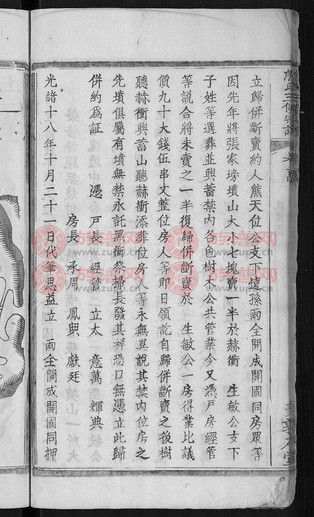 立歸併斷賣約人熊天位公支下堪孫兩全開成開國同房眾等
因先年將張家塝墳山大小七塊賣一半於赫衝 生敏公支下
子姓等選葬並興蓄禁內各色樹木公共管業今又憑戶房經管
等說合將未賣之一半復歸併斷賣於 生敏公一房得業比議
價九十大錢伍串文整位房人等即日領訖自歸併斷賣之後樹
聽赫衝興蓄山聽赫衝添葬位房人等永無異說其禁內位房之
先墳俱屬有墳無禁永託黑衝祭掃長發其祥恐口無憑立此歸
併約為証 憑 戶長 經管 立太 意萬 輝典
房長 承周 鳳與 獻廷
光緒十八年十月二十一日代筆思益立 兩全開成開國同押